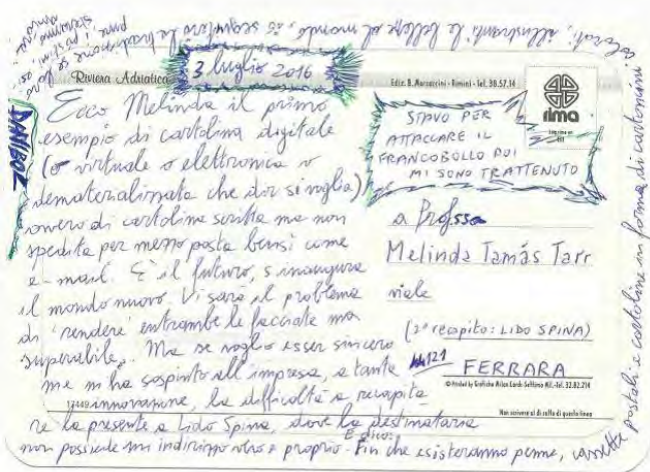 Riviera Adriatica
3 luglio 2016
Ediz. B. Marzoccini - Rimini - Tel. 30.57.14
rima
DANIBOL
Ecco Melinda il primo
esempio di cartolina digitale
(o virtuale o elettronica o
dematerializzata che dir si voglia)
ovvero di cartolina scritta ma non
spedita per mezzo posta bensì come
e-mail. È il futuro, s'inaugura
il mondo nuovo. Vi sarà il problema
di 'rendere' entrambe le facciate ma
superabile. Ma se voglio esser sincero
me m'ha sospinto all'impresa, a tanta
innovazione, la difficoltà a recapita
re la presente a Lido Spina, dove la destinataria
non possiede un indirizzo vero e proprio. Fin che esisteranno penne,
cassette postali e cartoline in forma di cartoncini
colorati, illustranti le bellezze al mondo, seguitare la tradizione
STAVO PER
ATTACCARE IL
FRANCOBOLLO POI
MI SONO TRATTENUTO
a Prof.ssa
Melinda Tamás Tarr
viale
(2° recapito: LIDO SPINA)
44121 FERRARA
Printed by Grafiche Milan Cards Settimo Mil. - Tel. 32.82.214
Non scrivere al di sotto di questa linea